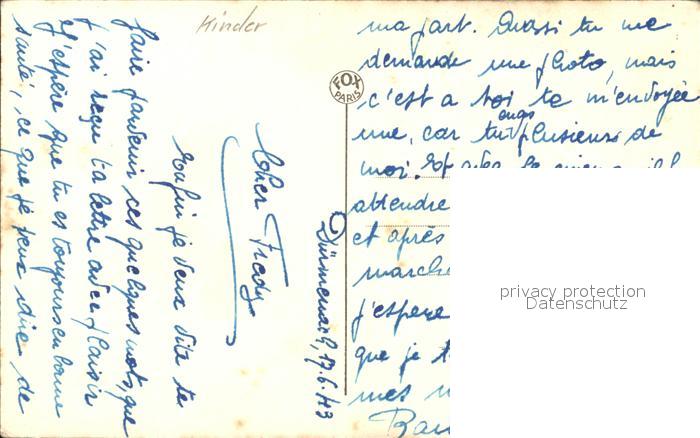 Kinder
Dürmenach, 17.6.43
Cher Fredy
Enfin je veux vite te
faire parvenir ces quelques mots, que
j'ai reçue ta lettre avec plaisir
J'espère que tu es toujours en bonne
santé, ce que je peux dire de
ma part. Aussi tu me
demande une photo, mais
c'est a toi te m'envoyée
une, car tu plusieurs de
moi. Et avec
attendre
et après
marche
j'espere
que je t
mes
FOX
PARIS
privacy protection
Datenschutz